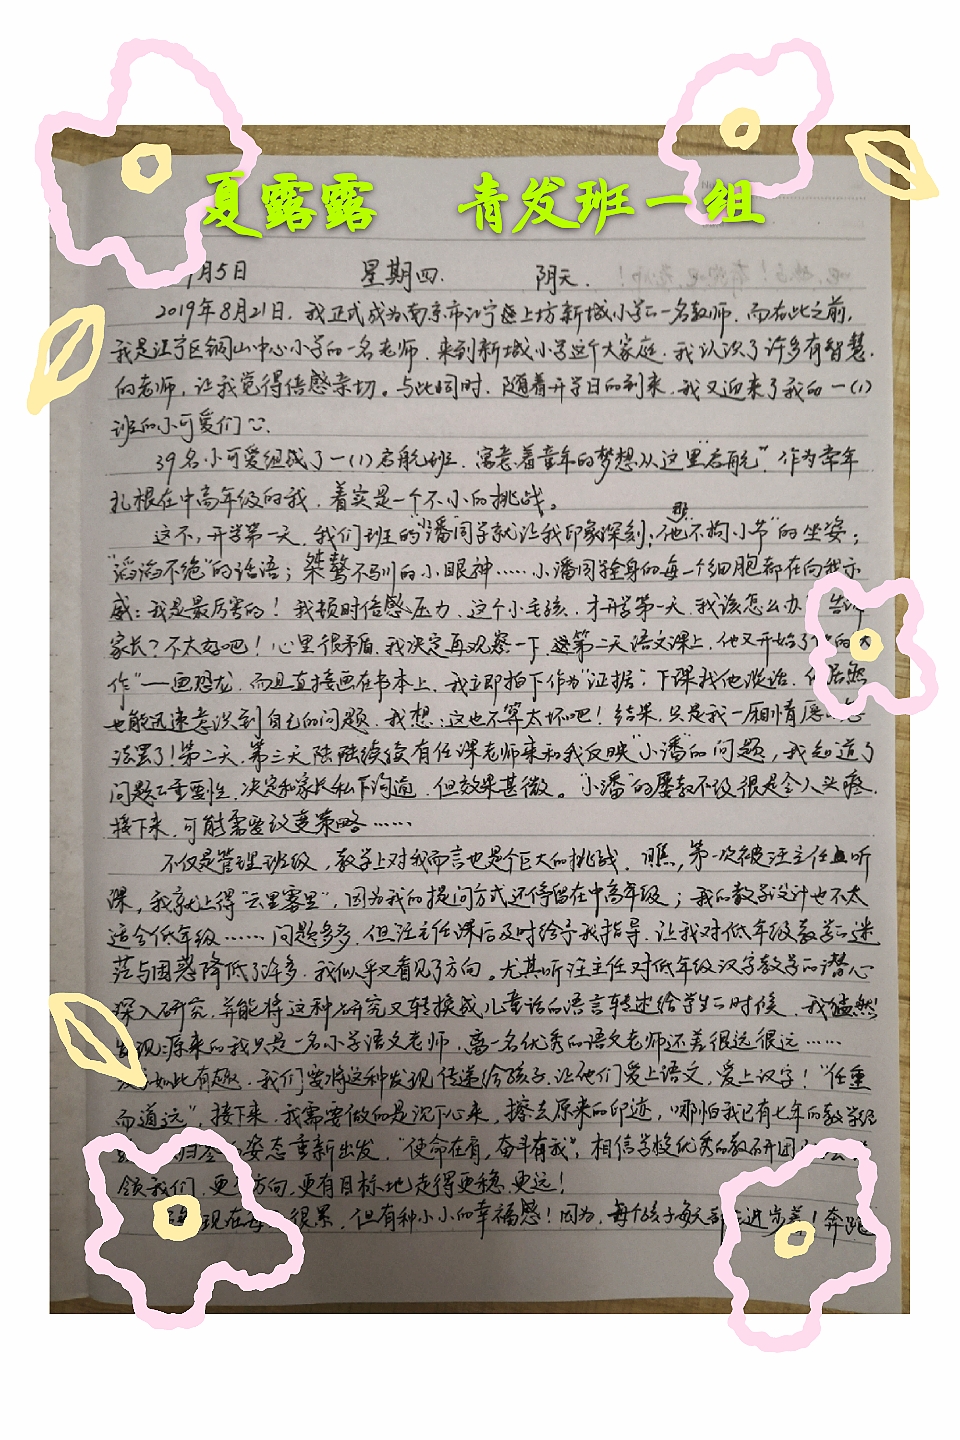 夏露露 青发班一组
月5日 星期四. 阴天.
2019年8月21日，我正式成为南京市江宁区上坊新城小学的一名教师，而在此之前，
我是江宁区铜山中心小学的一名老师，来到新城小学这个大家庭，我认识了许多有智慧
的老师，让我觉得倍感亲切。与此同时，随着开学日的到来，我又迎来了我的一（1）
班的小可爱们
39名小可爱组成了一（1）启航班，寓意着童年的梦想从这里“启航”。作为常年
扎根在中高年级的我，着实是一个不小的挑战。
这不，开学第一天，我们班的“潘”同学就让我印象深刻，他那“不拘小节”的坐姿；
“滔滔不绝”的话语；桀骜不驯的小眼神……小潘同学全身的每一个细胞都在向我示
威：我是最厉害的！我顿时倍感压力，这个小毛孩，才开学第一天，我该怎么办？告诉
家长？不太好吧！心里很矛盾，我决定再观察一下，第二天语文课上，他又开始了的大
作”——画恐龙，而且直接画在书本上，我立即拍下作为“证据”：下课找他谈话，他居然
也能迅速意识到自己的问题，我想：这也不算太坏吧！结果，只是我一厢情愿的想
法罢了！第二天、第三天陆陆续续有任课老师来和我反映“小潘”的问题，我知道了
问题的重要性，决定和家长私下沟通，但效果甚微。“小潘”的屡教不改很是令人头疼，
接下来，可能需要改变策略……
不仅是管理班级，教学上对我而言也是个巨大的挑战，瞧，第一次被汪主任听
课，我就上得“云里雾里”，因为我的提问方式还停留在中高年级；我的教学设计也不太
适合低年级……问题多多，但汪主任课后及时给予我指导，让我对低年级教学的迷
茫与困惑降低了许多，我似乎又看见了方向。尤其听汪主任对低年级汉字教学的潜心
深入研究，并能将这种研究又转换成儿童话的语言转述给学生的时候，我猛然
发现：原来的我只是一名小学语文老师，离一名优秀的语文老师还差很远很远……
如此有趣，我们要将这种发现传递给孩子，让他们爱上语文，爱上汉字！“任重
而道远”，接下来，我需要做的是沉下心来，擦去原来的印迹，哪怕我已有七年的教学经
归零的姿态重新出发，“使命在肩，奋斗有我”，相信学校优秀的教研团
领我们，更有方向，更有目标地走得更稳，更远！
现在每天很累，但有种小小的幸福感！因为，每个孩子每天都在进步着！奔跑